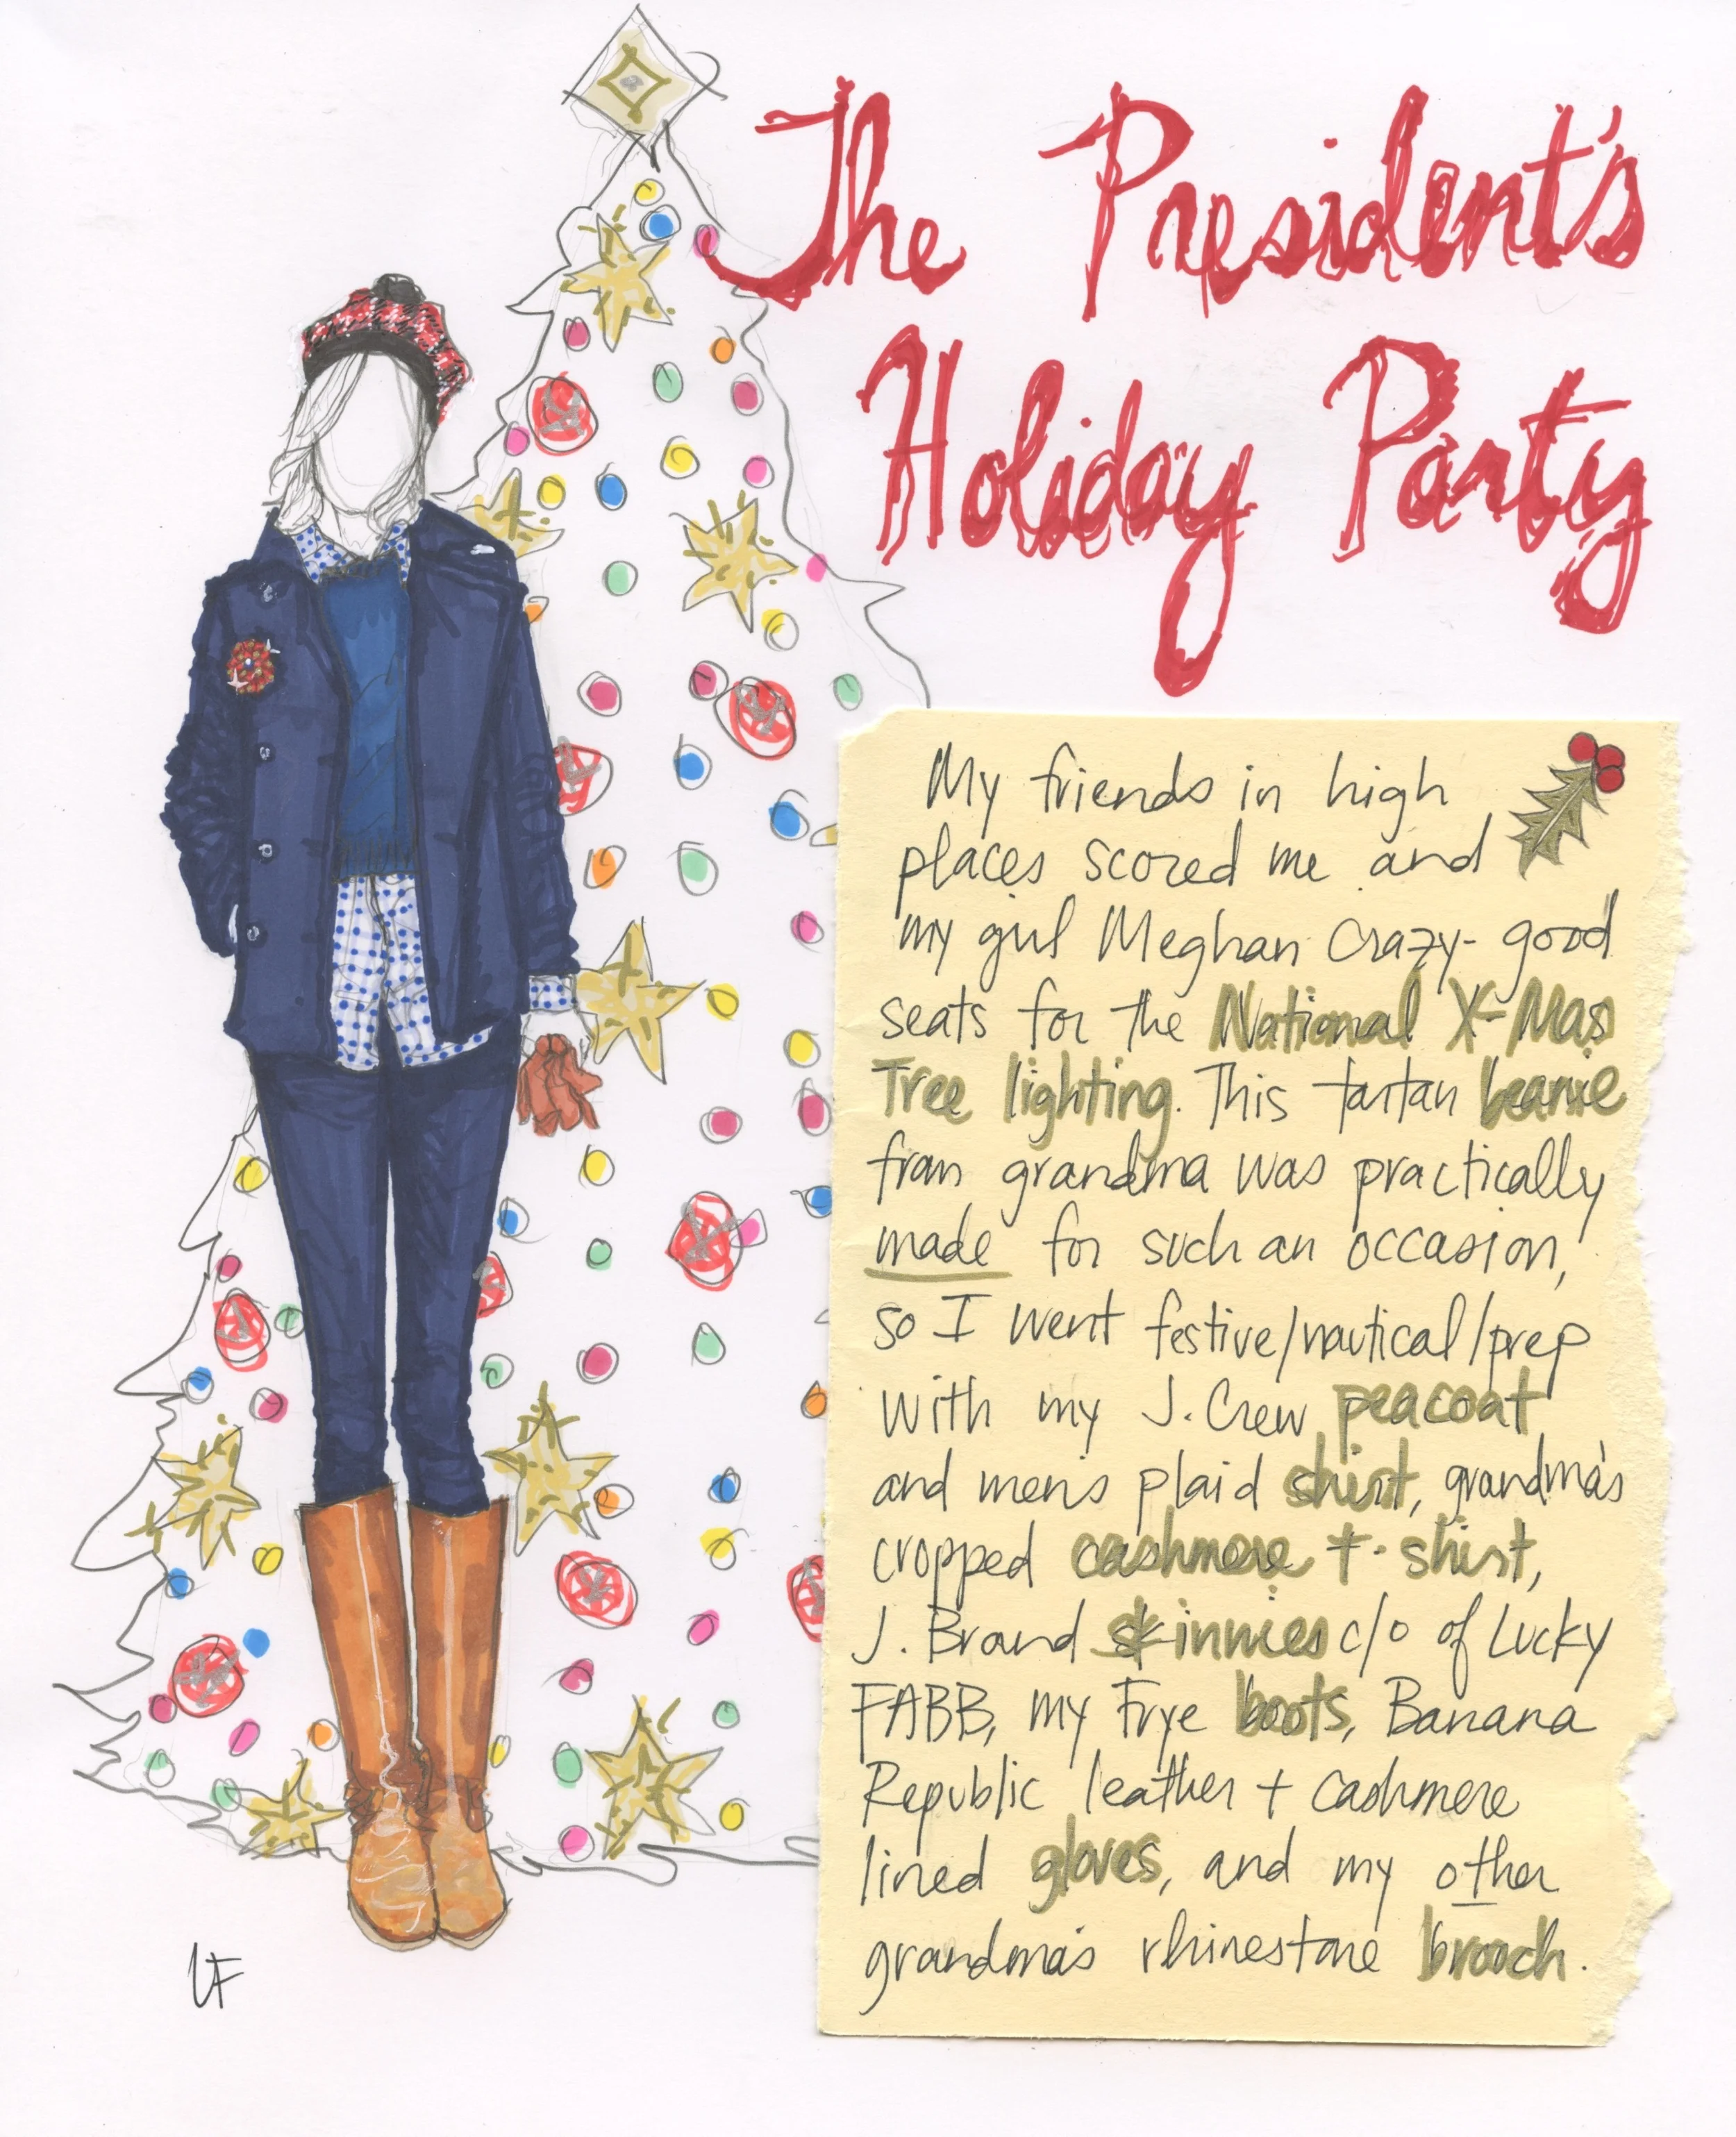 The President's
Holiday Party
My friends in high
places scored me and
my girl Meghan crazy-good
seats for the National X-Mas
Tree lighting. This tartan beanie
from grandma was practically
made for such an occasion,
so I went festive/nautical/prep
with my J. Crew peacoat
and men's plaid shirt, grandma's
cropped cashmere t-shirt,
J. Brand skinnies c/o of Lucky
FABB, my Frye boots, Banana
Republic leather + cashmere
lined gloves, and my other
grandma's rhinestone brooch.
LF